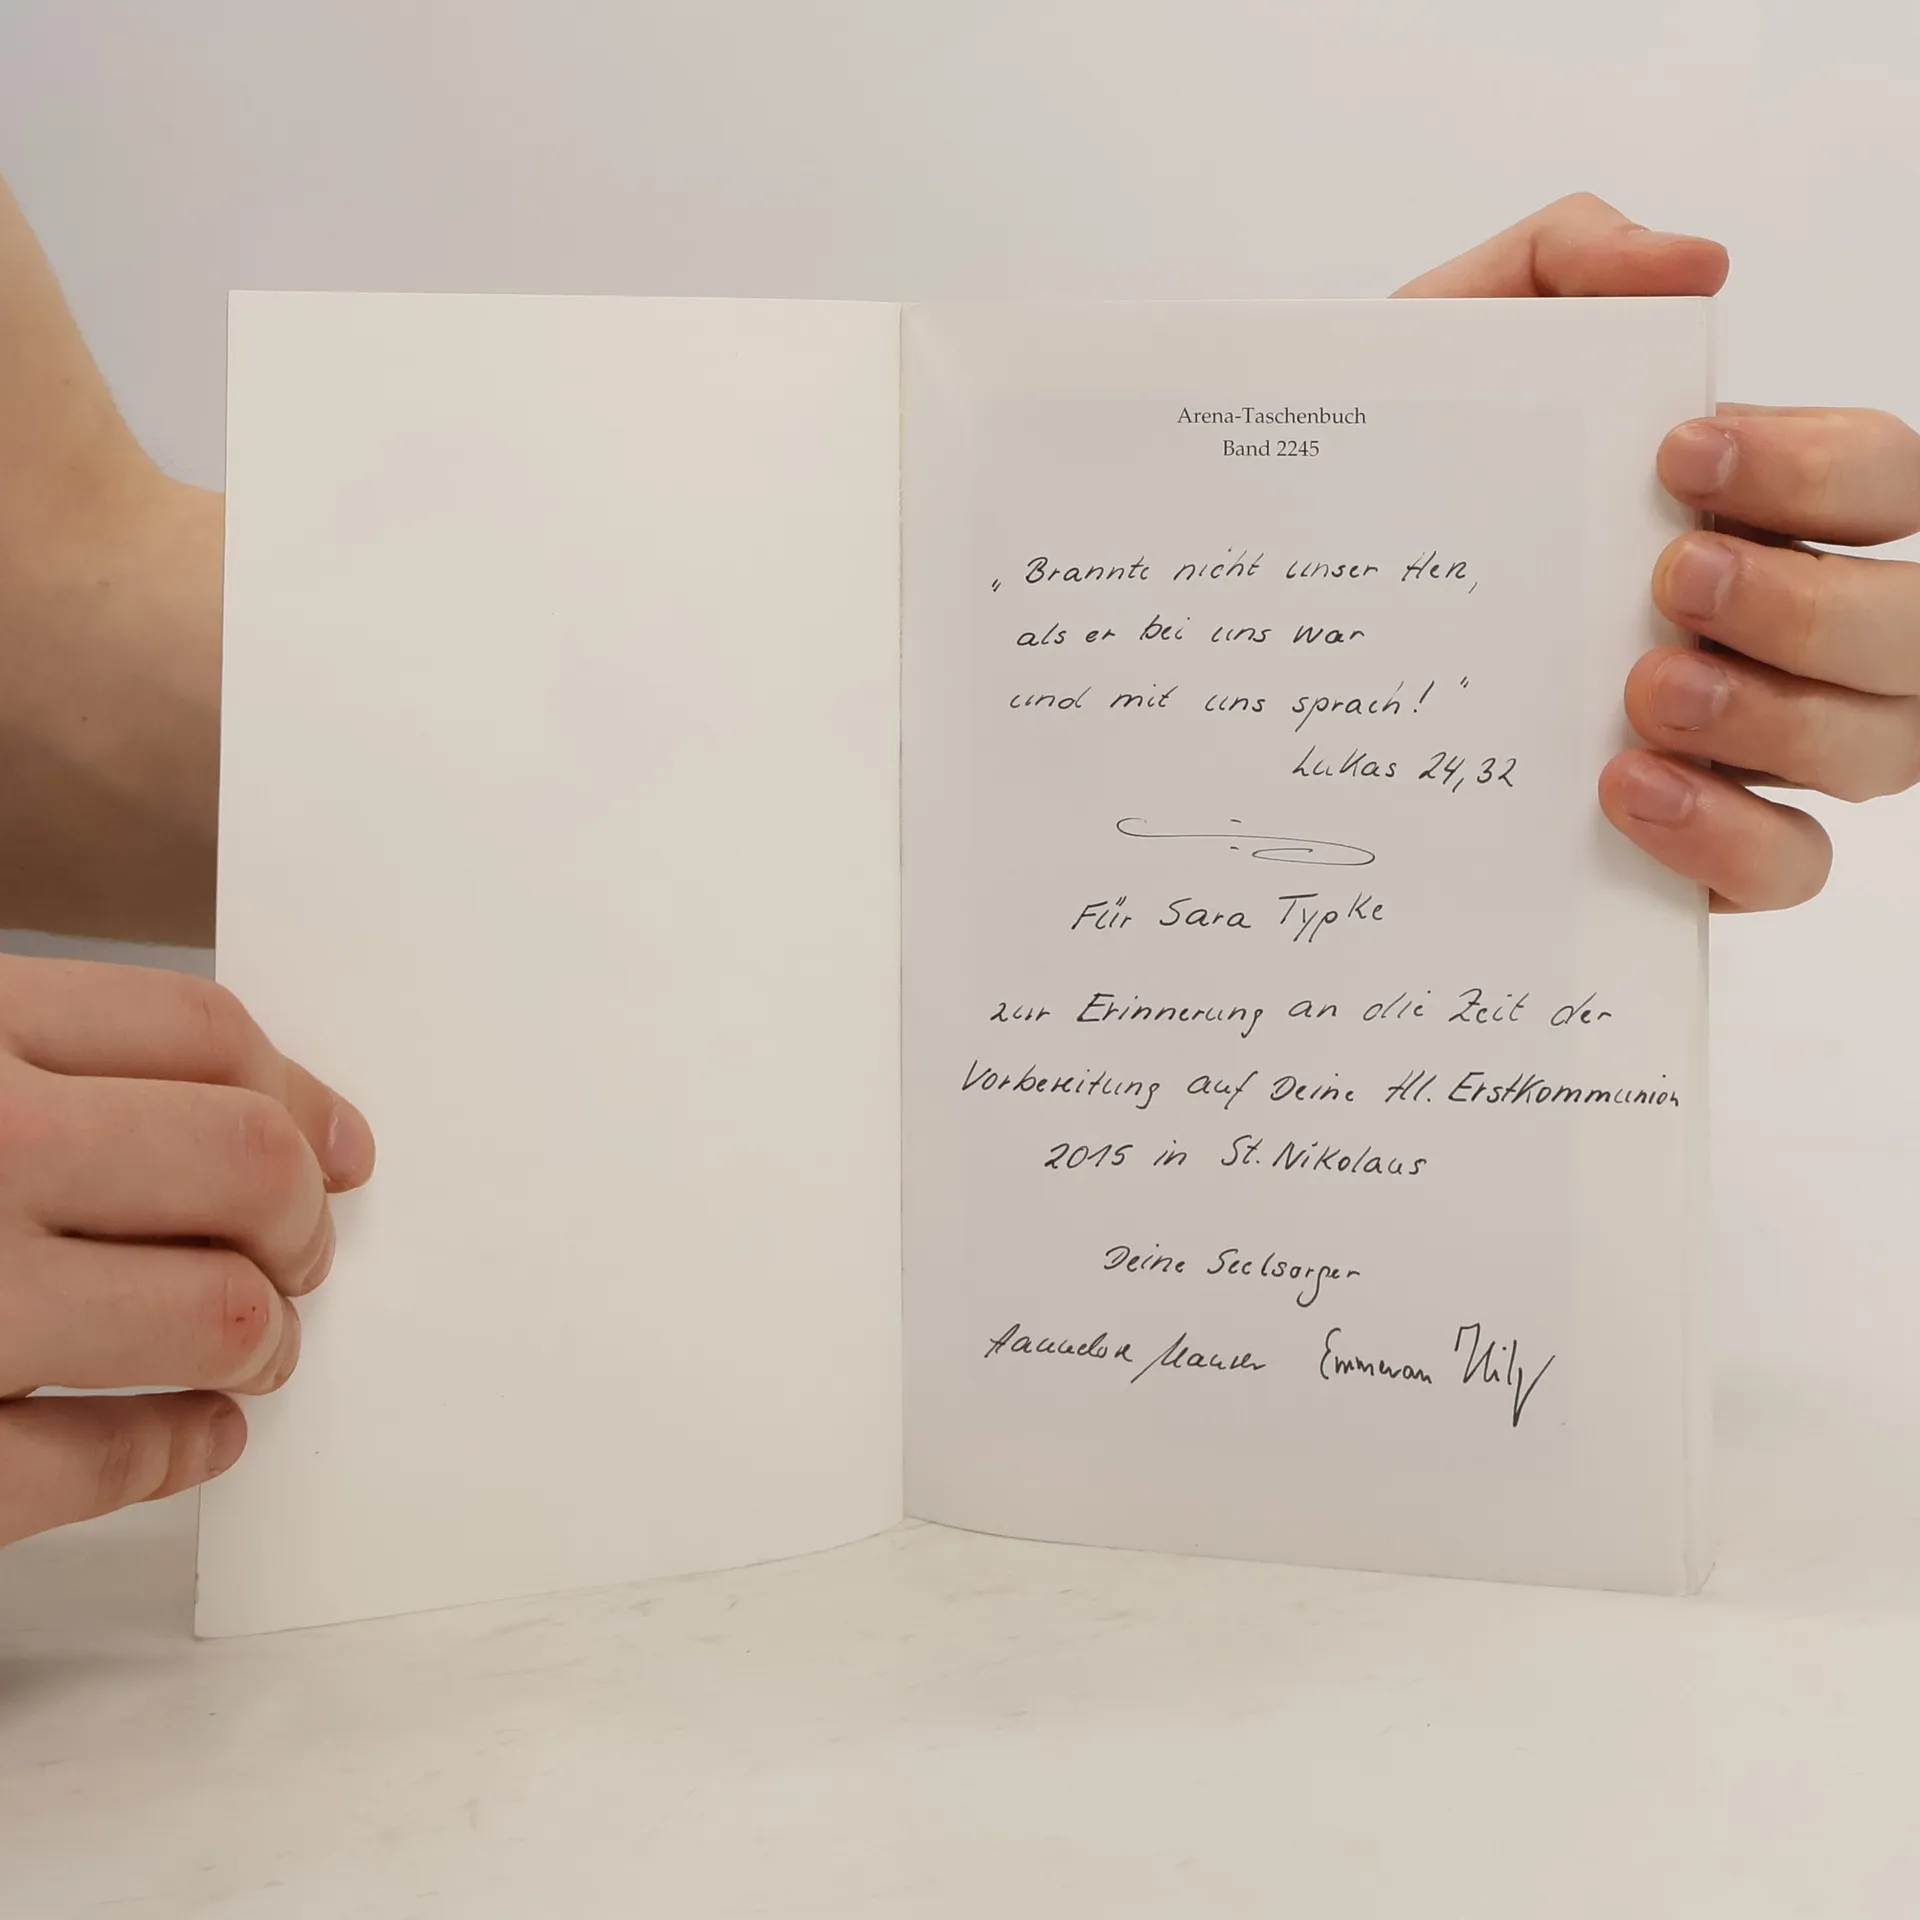 Arena-Taschenbuch
Band 2245
„Brannte nicht unser Herz,
als er bei uns war
und mit uns sprach!"
Lukas 24,32
Für Sara Typke
zur Erinnerung an die Zeit der
Vorbereitung auf Deine Hl. Erstkommunion
2015 in St. Nikolaus
Deine Seelsorger
Hannelore Emmeran